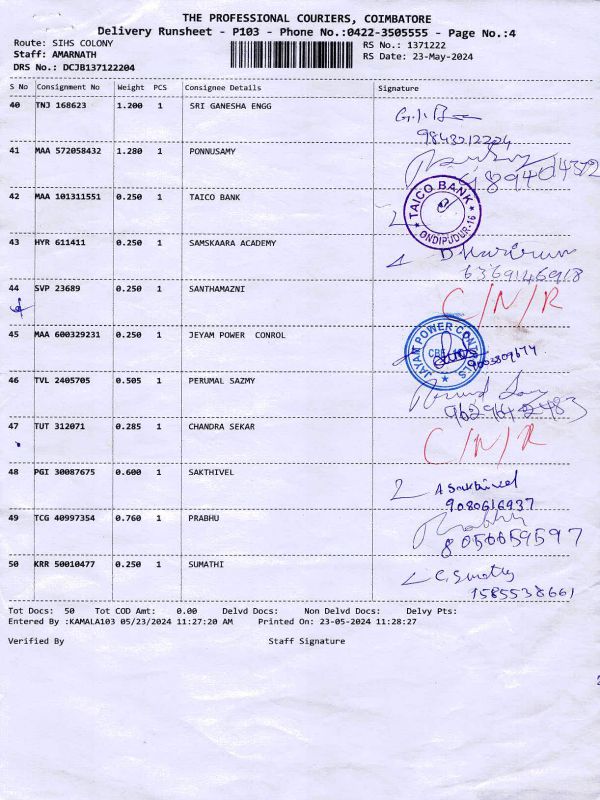 THE PROFESSIONAL COURIERS, COIMBATORE
Delivery Runsheet - P103 - Phone No.:0422-3505555 - Page No.:4
Route: SIHS COLONY RS No.: 1371222
Staff: AMARNATH RS Date: 23-May-2024
DRS No.: DCJB137122204
S No Consignment No Weight PCS Consignee Details Signature
40 TNJ 168623 1.200 1 SRI GANESHA ENGG
9843212224
41 MAA 572058432 1.280 1 PONNUSAMY
42 MAA 101311551 0.250 1 TAICO BANK
TAICO BANK
ONDIPUDUR-16
43 HYR 611411 0.250 1 SAMSKAARA ACADEMY
6369146918
44 SVP 23689 0.250 1 SANTHAMAZNI
C/N/R
45 MAA 600329231 0.250 1 JEYAM POWER CONROL
JAYAM POWER CONTROLS
46 TVL 2405705 0.505 1 PERUMAL SAZMY
9629642483
47 TUT 312071 0.285 1 CHANDRA SEKAR
C/N/R
48 PGI 30087675 0.600 1 SAKTHIVEL
A Sakthivel
9080616937
49 TCG 40997354 0.760 1 PRABHU
Prabhu
8056659597
50 KRR 50010477 0.250 1 SUMATHI
C. Sumathy
1585538661
Tot Docs: 50 Tot COD Amt: 0.00 Delvd Docs: Non Delvd Docs: Delvy Pts:
Entered By :KAMALA103 05/23/2024 11:27:20 AM Printed On: 23-05-2024 11:28:27
Verified By Staff Signature